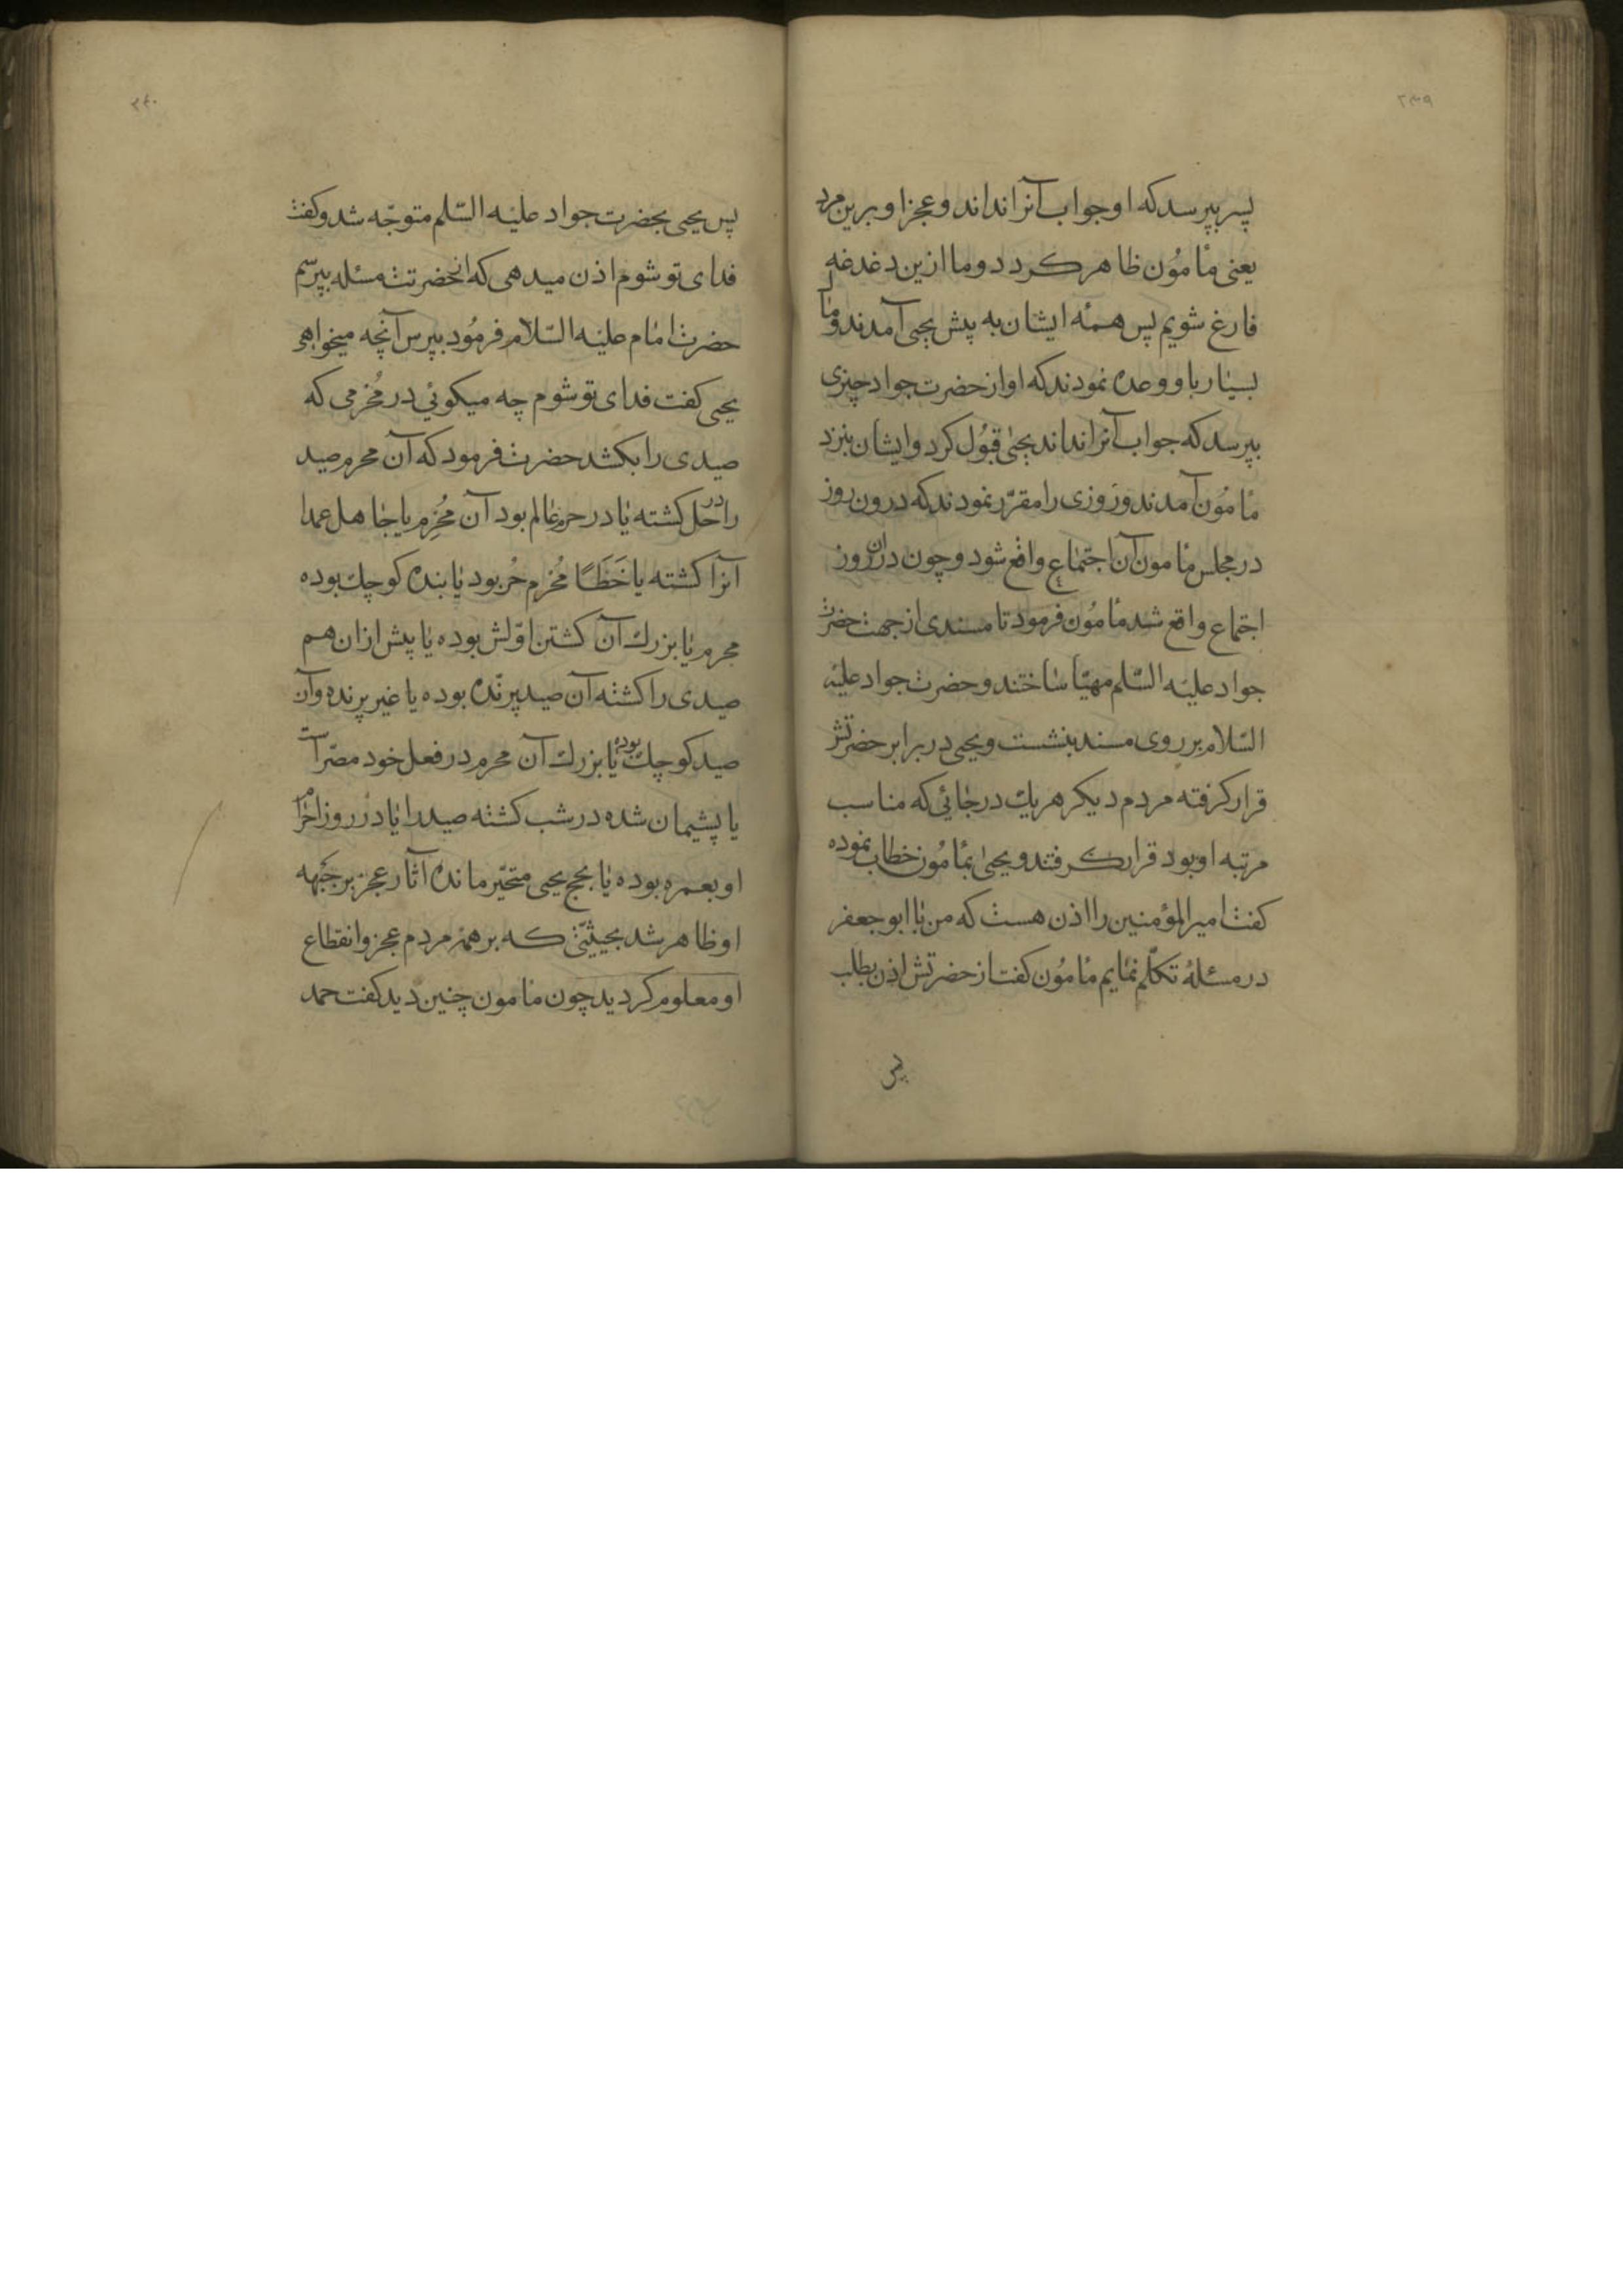 ۲۳۹
پسر بپرسد که او جواب آنرا نداند و عجز او برین مرد
یعنی مأمون ظاهر کردد و ما ازین دغدغه
فارغ شویم پس همه ایشان به پیش یحیی آمدند و مال
بسیار باو وعده نمودند که او از حضرت جواد چیزی
بپرسد که جواب آنرا نداند یحیی قبول کرد و ایشان بنزد
مأمون آمدند و روزی را مقرّر نمودند که درون روز
در مجلس مأمون آن اجتماع واقع شود و چون دران روز
اجتماع واقع شد مأمون فرمود تا مسندی از جهت حضرت
جواد علیه السّلم مهیّا ساختند و حضرت جواد علیه
السّلام بر روی مسند بنشست و یحیی در برابر حضرتش
قرار کرفته مردم دیکر هریك در جائی که مناسب
مرتبه او بود قرار کرفتند و یحیی بمأمون خطاب نموده
کفت امیر المؤمنین را اذن هست که من با ابو جعفر
در مسئلهٔ تکلّم نمایم مأمون کفت از حضرتش اذن بطلب
پس
۲۴۰
پس یحیی بحضرت جواد علیه السّلم متوجّه شد و کفت
فدای تو شوم اذن میدهی که از حضرتت مسئله بپرسم
حضرت امام علیه السّلام فرمود بپرس آنچه میخواهی
یحیی کفت فدای تو شوم چه میکوئی در مُحْرمی که
صیدی را بکشد حضرت فرمود که آن محرم صید
را در حل کشته یا در حرم عالم بود آن مُحْرِم یا جاهل عمدا
آنرا کشته یا خَطَأً مُحْرِم حُر بود یا بنده کوچك بوده
محرم یا بزرك آن کشتن اوّلش بوده یا پیش ازان هم
صیدی را کشته آن صید پرنده بوده یا غیر پرنده و آن
صید کوچك بوده یا بزرك آن محرم در فعل خود مصرّ است
یا پشیمان شده در شب کشته صید را یا در روز احرام
او بعمره بوده یا بحج یحیی متحیّر مانده آثار عجز بر جَبْهه
او ظاهر شد بحیثیّتی که بر همه مردم عجز و انقطاع
او معلوم کردید چون مأمون چنین دید کفت حمد